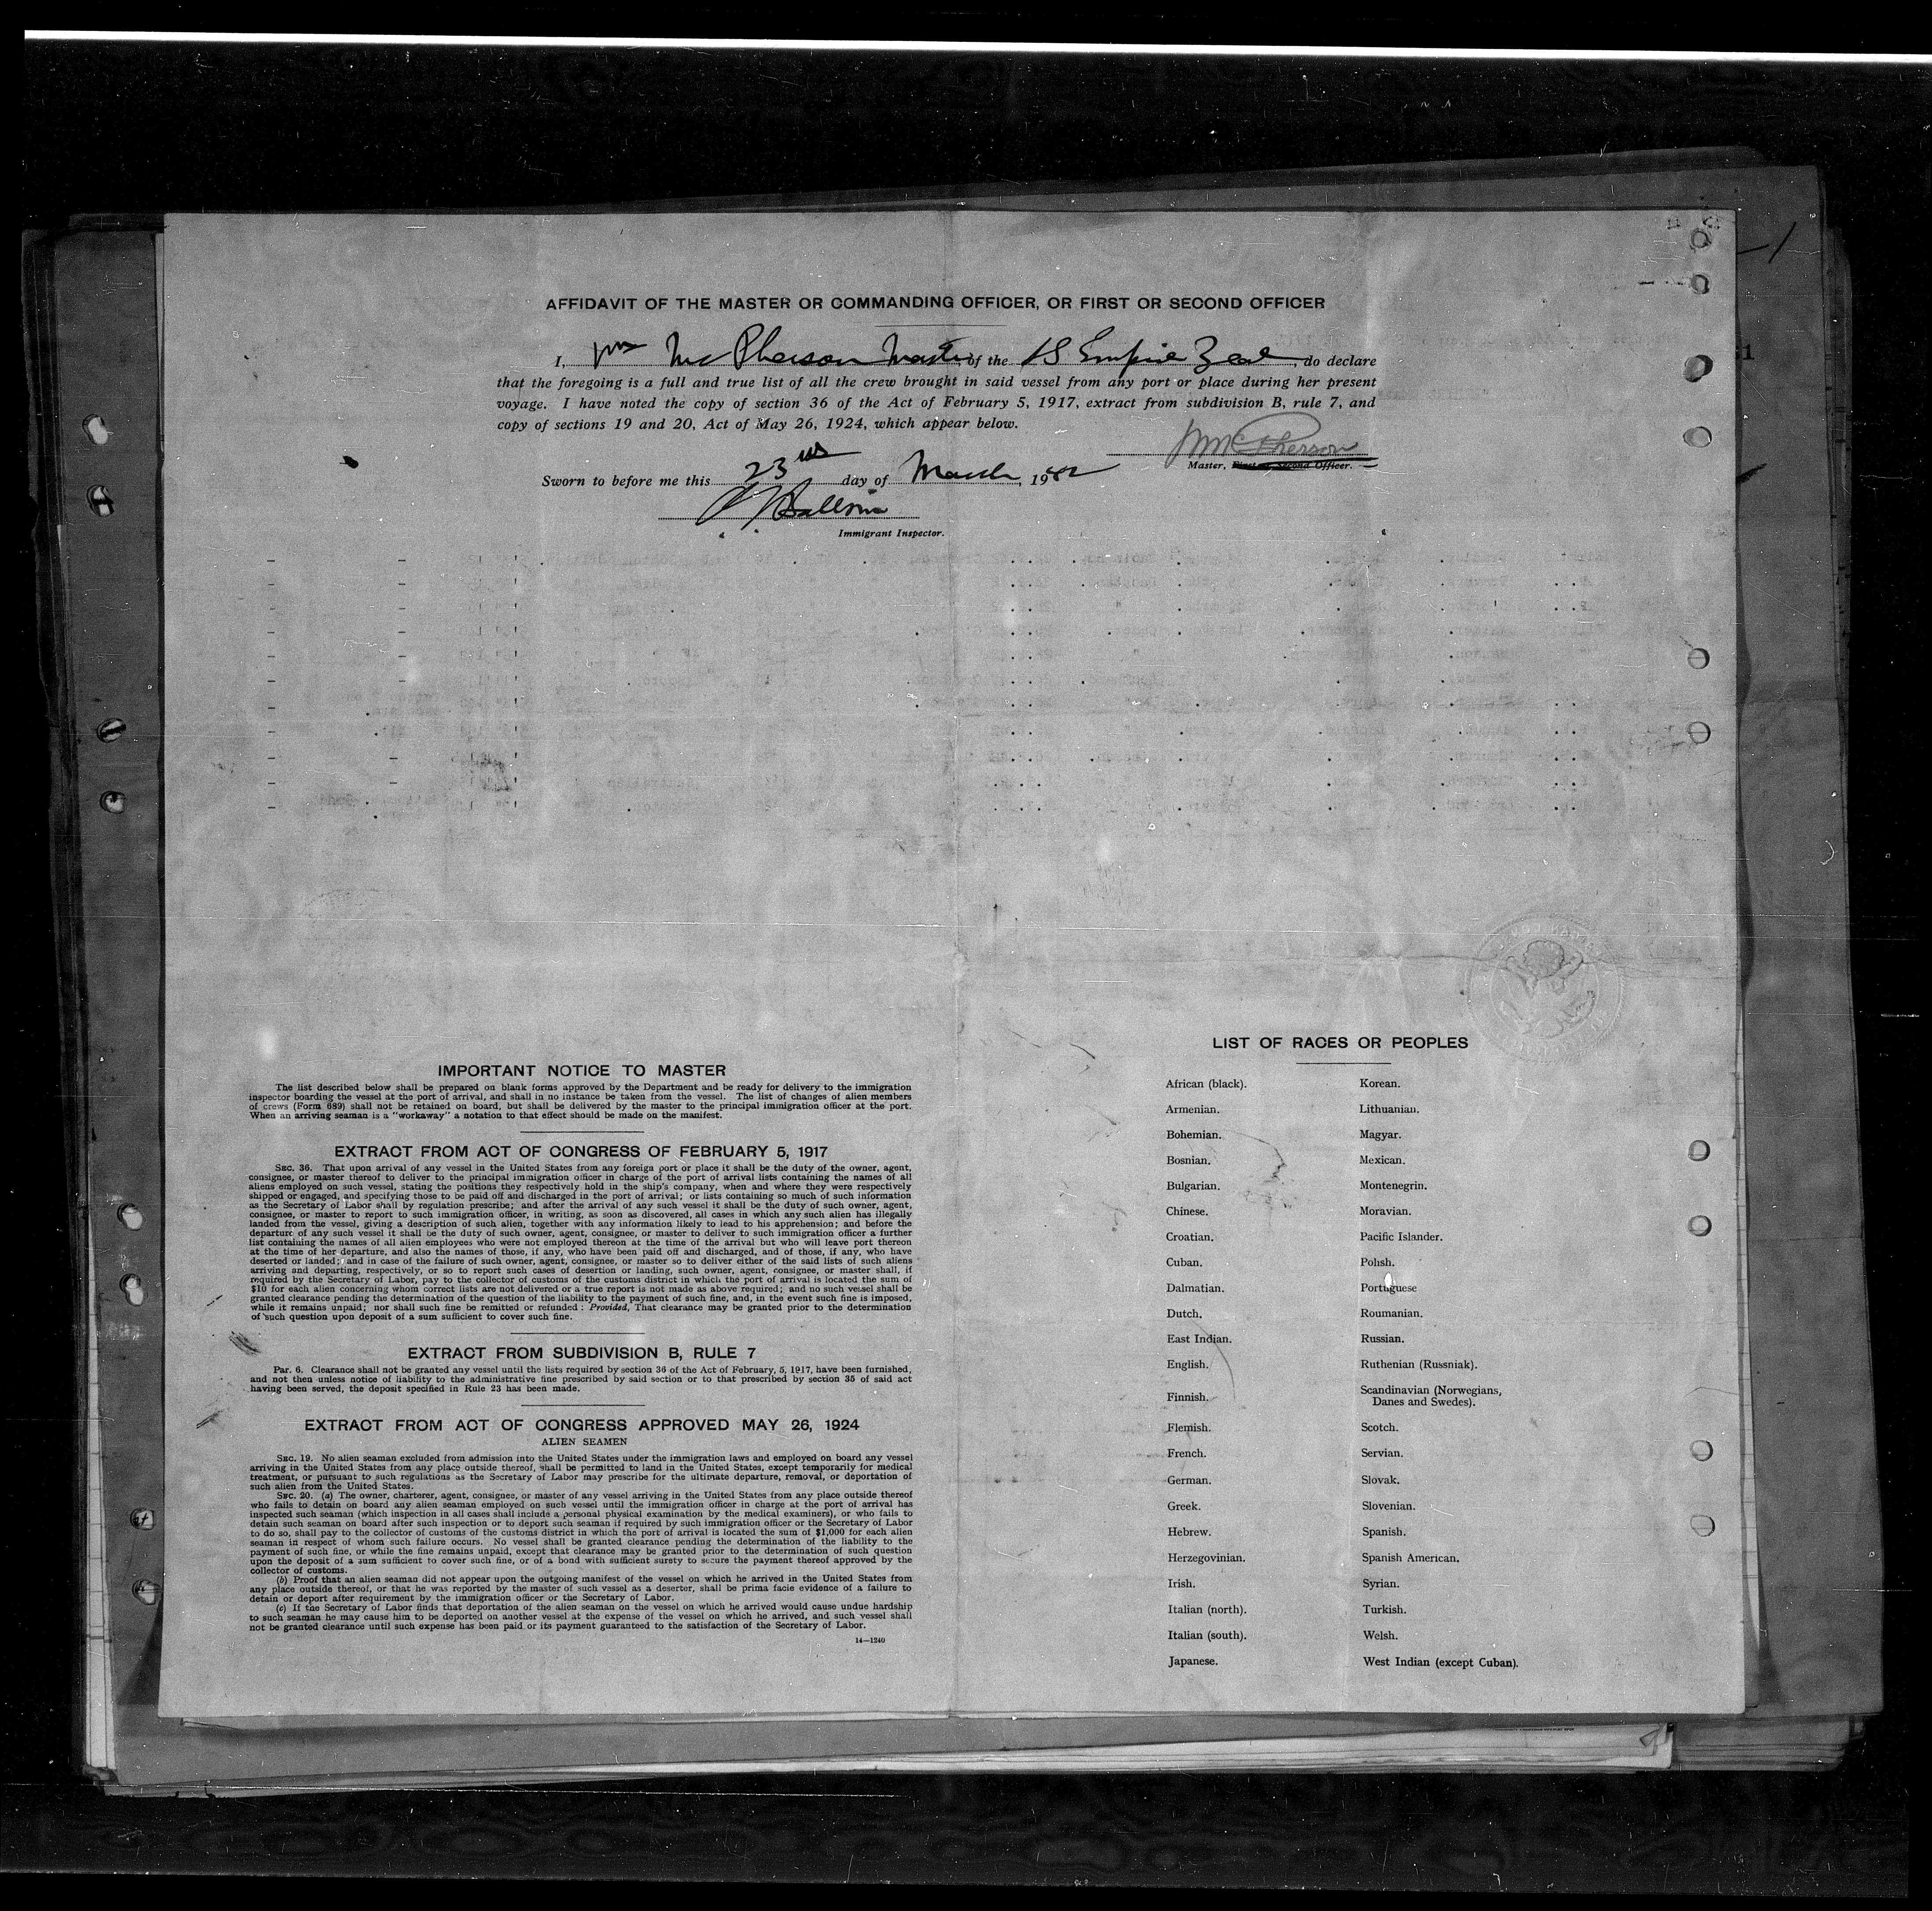 AFFIDAVIT OF THE MASTER OR COMMANDING OFFICER, OR FIRST OR SECOND OFFICER
I, Wm McPherson Master, of the SS Empire Zeal, do declare
that the foregoing is a full and true list of all the crew brought in said vessel from any port or place during her present
voyage. I have noted the copy of section 36 of the Act of February 5, 1917, extract from subdivision B, rule 7, and
copy of sections 19 and 20, Act of May 26, 1924, which appear below.
WMcPherson
Master, First or Second Officer.
Sworn to before me this 23rd day of March, 1942
Immigrant Inspector.
IMPORTANT NOTICE TO MASTER
The list described below shall be prepared on blank forms approved by the Department and be ready for delivery to the immigration
inspector boarding the vessel at the port of arrival, and shall in no instance be taken from the vessel. The list of changes of alien members
of crews (Form 689) shall not be retained on board, but shall be delivered by the master to the principal immigration officer at the port.
When an arriving seaman is a "workaway" a notation to that effect should be made on the manifest.
EXTRACT FROM ACT OF CONGRESS OF FEBRUARY 5, 1917
SEC. 36. That upon arrival of any vessel in the United States from any foreign port or place it shall be the duty of the owner, agent,
consignee, or master thereof to deliver to the principal immigration officer in charge of the port of arrival lists containing the names of all
aliens employed on such vessel, stating the positions they respectively hold in the ship's company, when and where they were respectively
shipped or engaged, and specifying those to be paid off and discharged in the port of arrival; or lists containing so much of such information
as the Secretary of Labor shall by regulation prescribe; and after the arrival of any such vessel it shall be the duty of such owner, agent,
consignee, or master to report to such immigration officer, in writing, as soon as discovered, all cases in which any such alien has illegally
landed from the vessel, giving a description of such alien, together with any information likely to lead to his apprehension; and before the
departure of any such vessel it shall be the duty of such owner, agent, consignee, or master to deliver to such immigration officer a further
list containing the names of all alien employees who were not employed thereon at the time of the arrival but who will leave port thereon
at the time of her departure, and also the names of those, if any, who have been paid off and discharged, and of those, if any, who have
deserted or landed; and in case of the failure of such owner, agent, consignee, or master so to deliver either of the said lists of such aliens
arriving and departing, respectively, or so to report such cases of desertion or landing, such owner, agent, consignee, or master shall, if
required by the Secretary of Labor, pay to the collector of customs of the customs district in which the port of arrival is located the sum of
$10 for each alien concerning whom correct lists are not delivered or a true report is not made as above required; and no such vessel shall be
granted clearance pending the determination of the question of the liability to the payment of such fine, and, in the event such fine is imposed,
while it remains unpaid; nor shall such fine be remitted or refunded: Provided, That clearance may be granted prior to the determination
of such question upon deposit of a sum sufficient to cover such fine.
EXTRACT FROM SUBDIVISION B, RULE 7
Par. 6. Clearance shall not be granted any vessel until the lists required by section 36 of the Act of February, 5, 1917, have been furnished,
and not then unless notice of liability to the administrative fine prescribed by said section or to that prescribed by section 35 of said act
having been served, the deposit specified in Rule 23 has been made.
EXTRACT FROM ACT OF CONGRESS APPROVED MAY 26, 1924
ALIEN SEAMEN
SEC. 19. No alien seaman excluded from admission into the United States under the immigration laws and employed on board any vessel
arriving in the United States from any place outside thereof, shall be permitted to land in the United States, except temporarily for medical
treatment, or pursuant to such regulations as the Secretary of Labor may prescribe for the ultimate departure, removal, or deportation of
such alien from the United States.
SEC. 20. (a) The owner, charterer, agent, consignee, or master of any vessel arriving in the United States from any place outside thereof
who fails to detain on board any alien seaman employed on such vessel until the immigration officer in charge at the port of arrival has
inspected such seaman (which inspection in all cases shall include a personal physical examination by the medical examiners), or who fails to
detain such seaman on board after such inspection or to deport such seaman if required by such immigration officer or the Secretary of Labor
to do so, shall pay to the collector of customs of the customs district in which the port of arrival is located the sum of $1,000 for each alien
seaman in respect of whom such failure occurs. No vessel shall be granted clearance pending the determination of the liability to the
payment of such fine, or while the fine remains unpaid, except that clearance may be granted prior to the determination of such question
upon the deposit of a sum sufficient to cover such fine, or of a bond with sufficient surety to secure the payment thereof approved by the
collector of customs.
(b) Proof that an alien seaman did not appear upon the outgoing manifest of the vessel on which he arrived in the United States from
any place outside thereof, or that he was reported by the master of such vessel as a deserter, shall be prima facie evidence of a failure to
detain or deport after requirement by the immigration officer or the Secretary of Labor.
(c) If the Secretary of Labor finds that deportation of the alien seaman on the vessel on which he arrived would cause undue hardship
to such seaman he may cause him to be deported on another vessel at the expense of the vessel on which he arrived, and such vessel shall
not be granted clearance until such expense has been paid or its payment guaranteed to the satisfaction of the Secretary of Labor.
14—1240
LIST OF RACES OR PEOPLES
African (black).
Armenian.
Bohemian.
Bosnian.
Bulgarian.
Chinese.
Croatian.
Cuban.
Dalmatian.
Dutch.
East Indian.
English.
Finnish.
Flemish.
French.
German.
Greek.
Hebrew.
Herzegovinian.
Irish.
Italian (north).
Italian (south).
Japanese.
Korean.
Lithuanian.
Magyar.
Mexican.
Montenegrin.
Moravian.
Pacific Islander.
Polish.
Portuguese
Roumanian.
Russian.
Ruthenian (Russniak).
Scandinavian (Norwegians,
Danes and Swedes).
Scotch.
Servian.
Slovak.
Slovenian.
Spanish.
Spanish American.
Syrian.
Turkish.
Welsh.
West Indian (except Cuban).